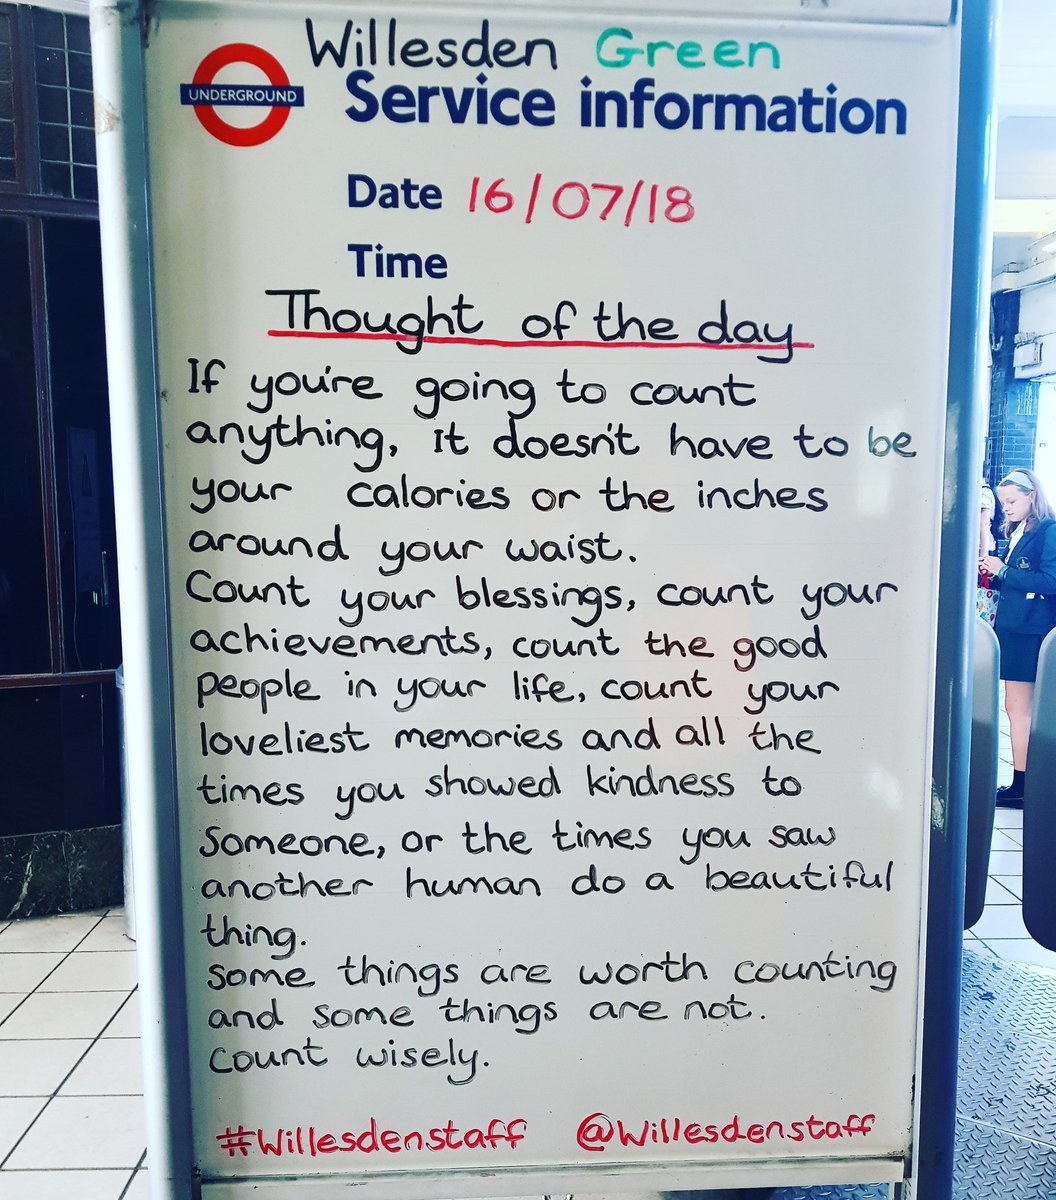 Willesden Green
UNDERGROUND
Service information
Date 16/07/18
Time
Thought of the day
If you're going to count
anything, It doesn't have to be
your calories or the inches
around your waist.
Count your blessings, count your
achievements, count the good
people in your life, count your
loveliest memories and all the
times you showed kindness to
someone, or the times you saw
another human do a beautiful
thing.
some things are worth counting
and some things are not.
count wisely.
#Willesdenstaff @Willesdenstaff